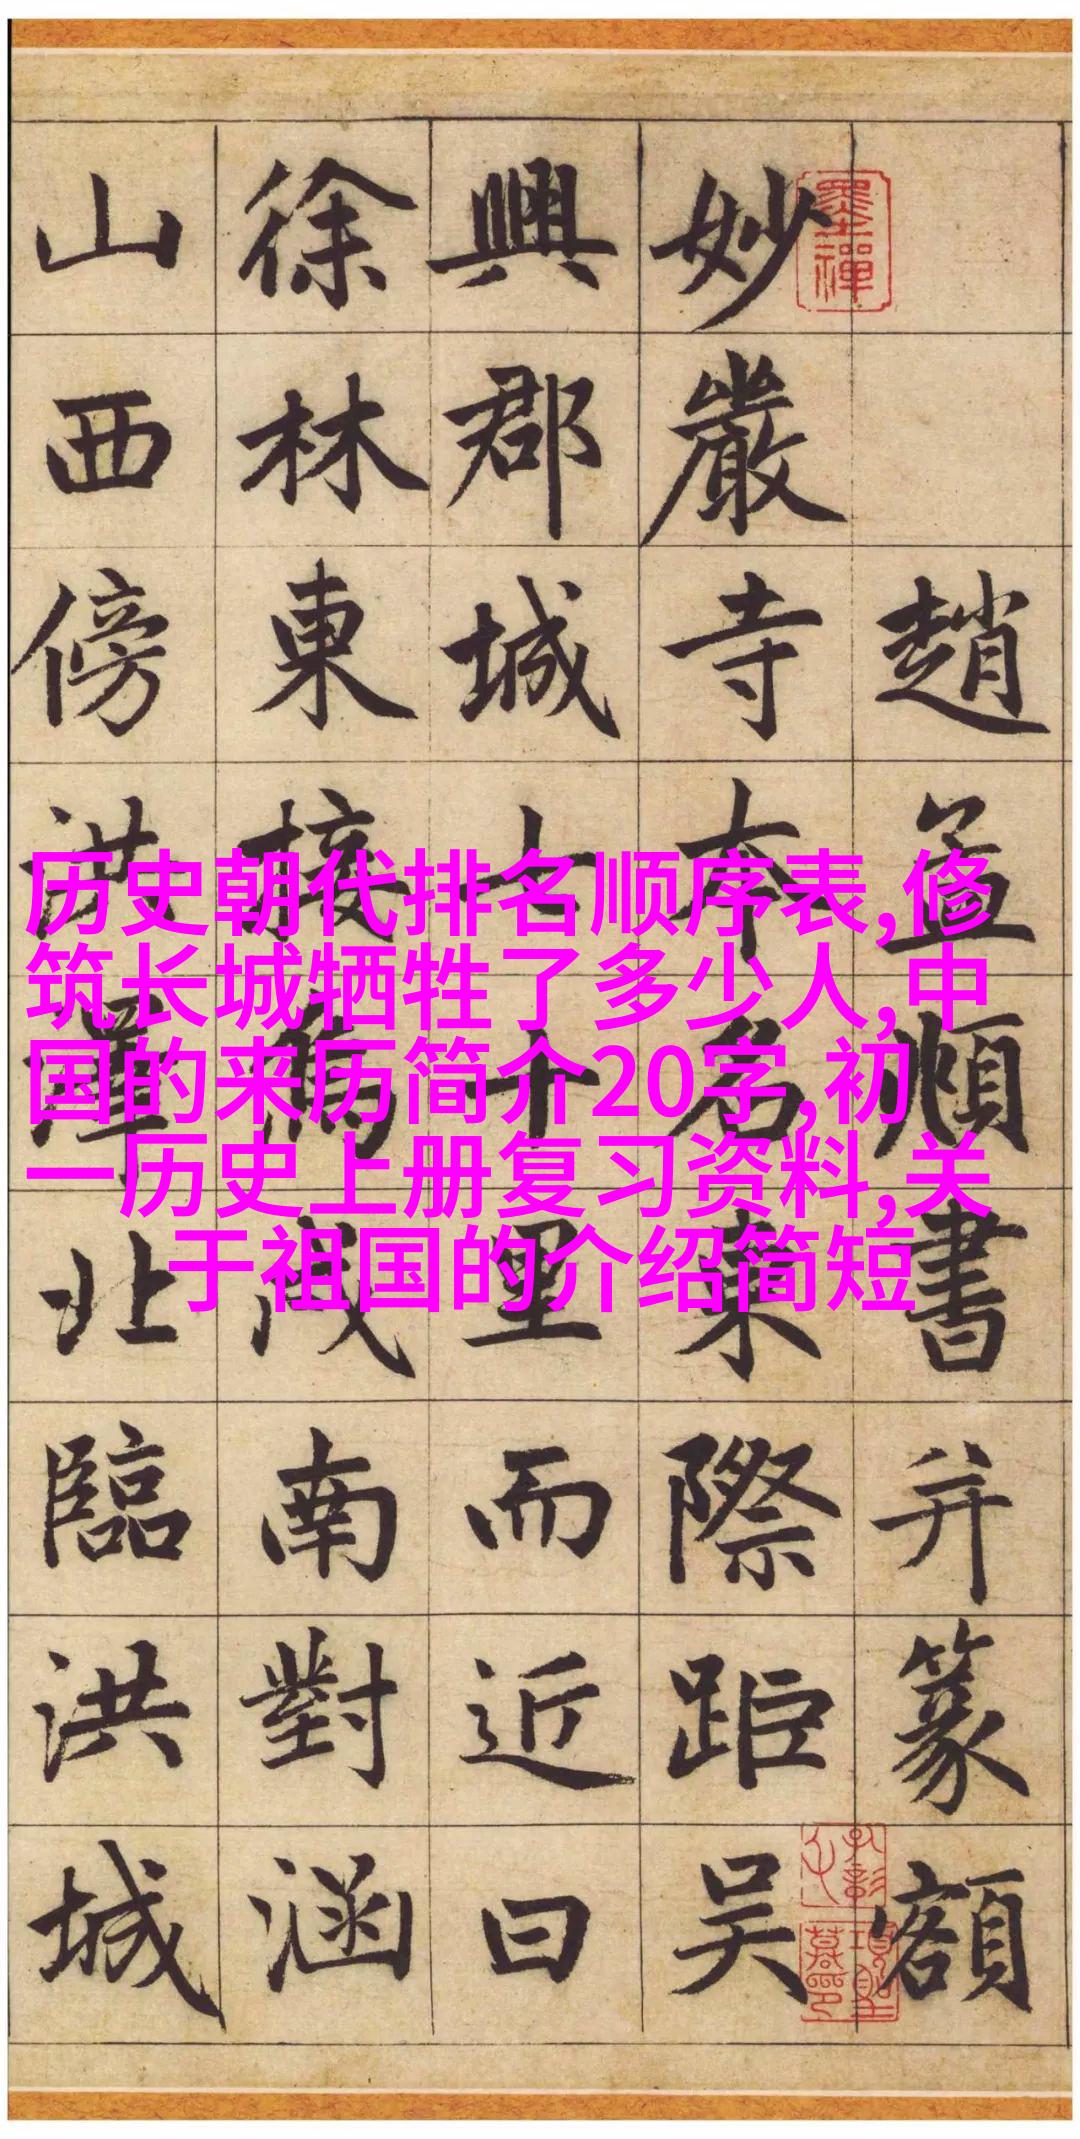 墨禪
趙孟頫書并篆額
妙嚴寺本名東際距吳
興郡城七十里而近曰
徐林東接烏戍南對涵
山西傍洪澤北臨洪城
历史朝代排名顺序表,修
筑长城牺牲了多少人,中
国的来历简介20字,初
一历史上册复习资料,关
于祖国的介绍简短